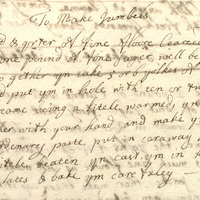 To Make Jumbels
d & qrter of fine flower
one pound of fine suger well be
to gether ym take 5 or 6 yolkes of
and put ym in hole with ten or tw
creame being a little warmed, yn
with your hand, and make y
ordinary paste put in caraway
little beaten ym cast ym in
plates & bake ym care fuley